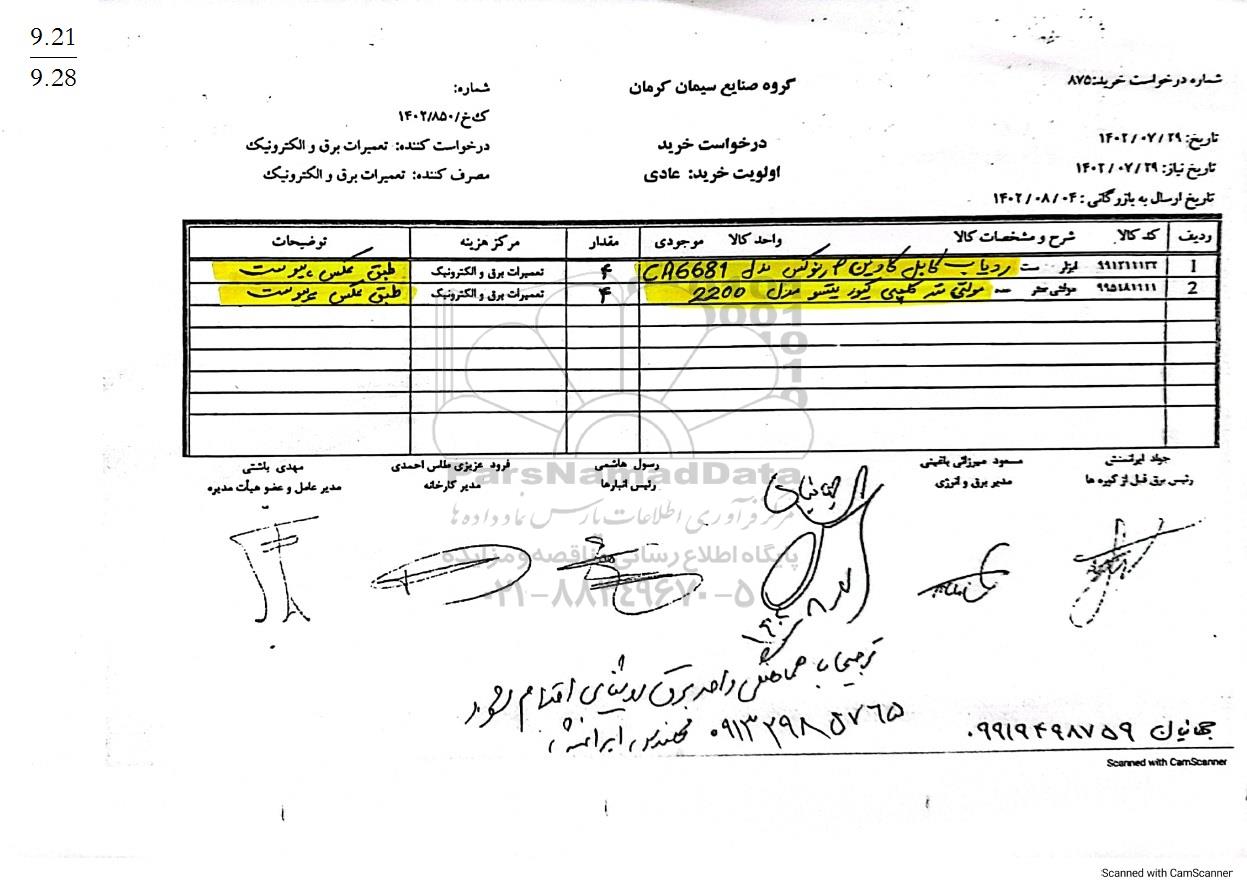 9.21
9.28
شماره درخواست خرید: ۸۷۵
گروه صنایع سیمان کرمان
شماره:
ک‌خ/۱۴۰۲/۸۵۰
تاریخ: ۱۴۰۲/۰۷/۲۹
درخواست خرید
درخواست کننده: تعمیرات برق و الکترونیک
تاریخ نیاز: ۱۴۰۲/۰۷/۲۹
اولویت خرید: عادی
مصرف کننده: تعمیرات برق و الکترونیک
تاریخ ارسال به بازرگانی: ۱۴۰۲/۰۸/۰۴
ردیف کد کالا شرح و مشخصات کالا واحد کالا موجودی مقدار مرکز هزینه توضیحات
1 ۹۹۱۲۱۱۱۲۲ ست ردیاب کابل کاوین آرنوکس مدل CA6681 ۴ تعمیرات برق و الکترونیک طبق عکس پیوست
2 ۹۹۵۱۸۱۱۱۱ مولتی متر عدد مولتی متر کلمپی کیوریتسو مدل 2200 ۴ تعمیرات برق و الکترونیک طبق عکس پیوست
جواد ایرانمنش
رئیس برق قبل از کوره ها
مسعود میرزائی باغینی
مدیر برق و انرژی
رسول هاشمی
رئیس انبارها
فرود عزیزی طلاس احمدی
مدیر کارخانه
مهدی باشتی
مدیر عامل و عضو هیأت مدیره
ParsNamadData
مرکز فرآوری اطلاعات پارس نماد داده ها
پایگاه اطلاع رسانی مناقصه و مزایده
۰۲۱-۸۸۳۴۹۶۷۰-۵
جهانیان
۱۴۰۲/۸/
ترجیحا با هماهنگی واحد برق روشنایی اقدام شود
۰۹۱۳۲۹۸۵۷۶۵ مهندس ایرانمنش
جهانیان ۰۹۹۱۹۴۹۸۷۵۹
Scanned with CamScanner
Scanned with CamScanner